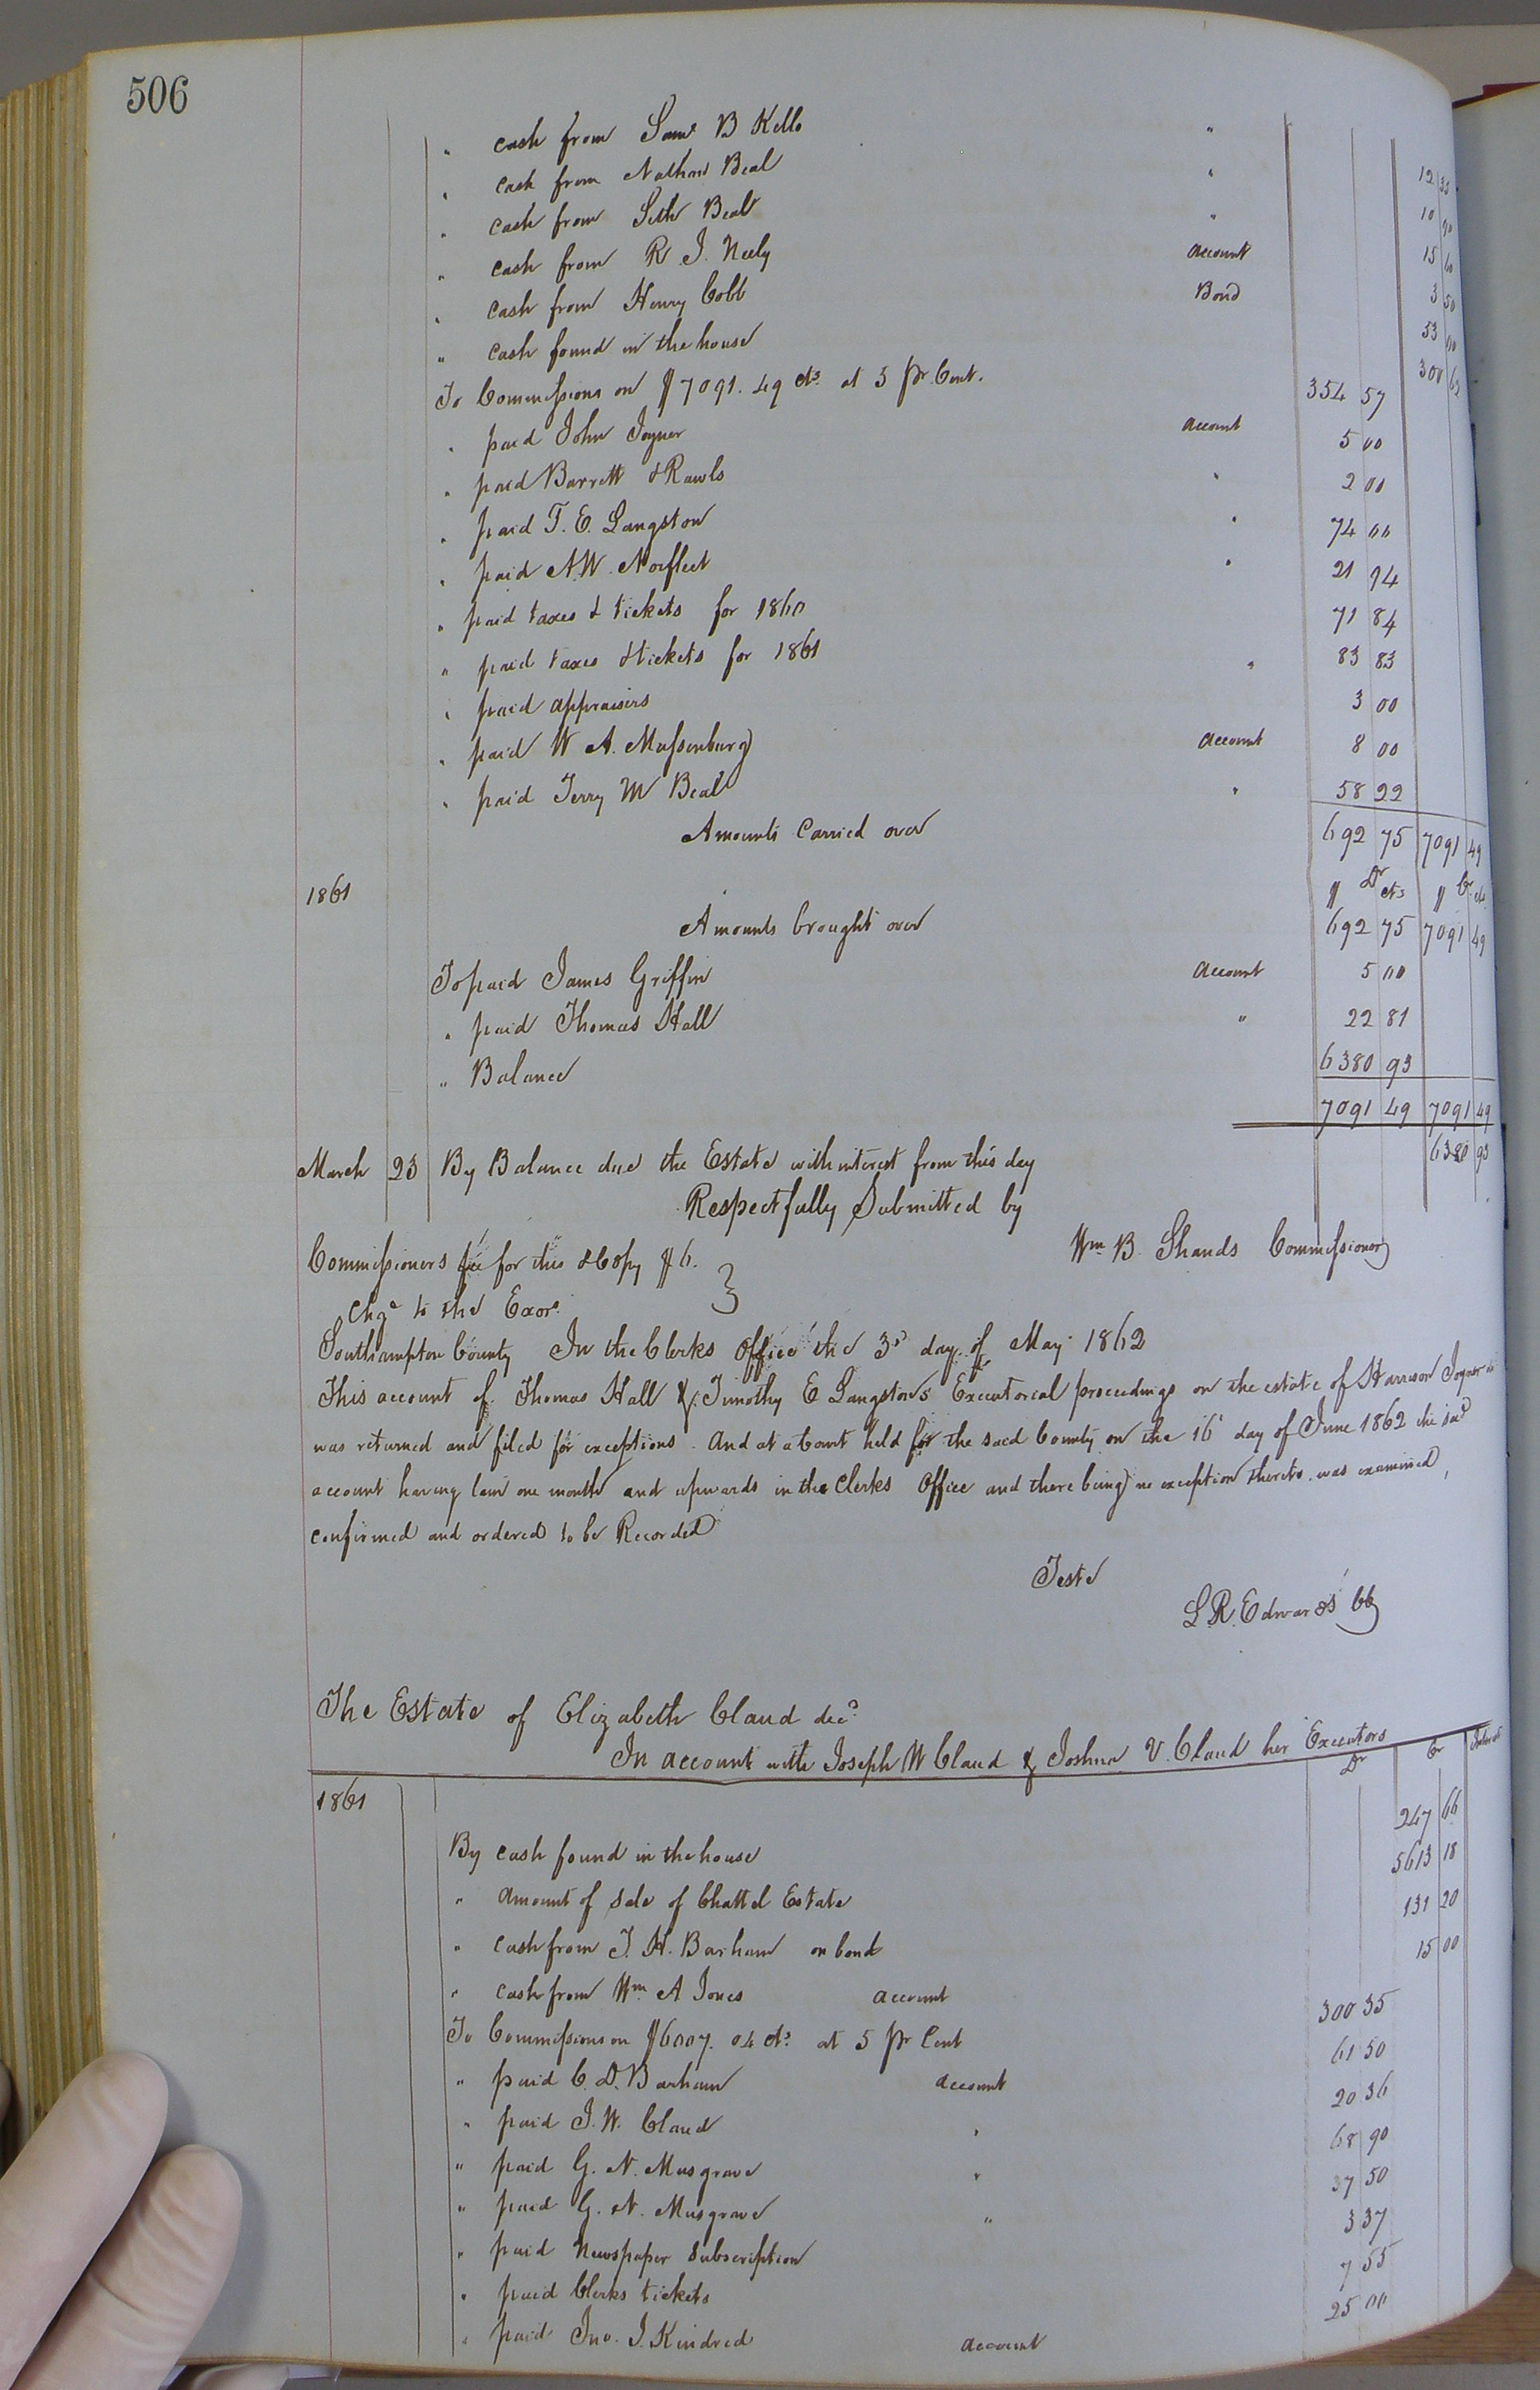 506
" cash from Saml B Kello " 12 35
" cash from Nathan Beal " 10 90
" cash from Seth Beal " 15 60
" cash from R. J. Neely account 3 50
" cash from Henry Cobb Bond 53 00
" cash found in the house 300 62
To Commissions on $7091. 49 cts at 5 pr Cent. 354 57
" paid John Joyner account 5 00
" paid Barrett & Rawls " 2 00
" paid T. E. Langston " 74 00
" paid A. W. Norfleet " 21 94
" paid taxes & tickets for 1860 71 84
" paid taxes & tickets for 1861 " 83 83
" paid appraisers 3 00
" paid W A. Massenburg account 8 00
" paid Jerry M Beal " 58 22
Amounts Carried over 692 75 7091 49
1861 $ Dr cts $ Cr cts
Amounts brought over 692 75 7091 49
To paid James Griffin account 5 00
" paid Thomas Hall " 22 81
" Balance 6380 93
7091 49 7091 49
March 23 By Balance due the Estate with interest from this day 6380 93
Respectfully Submitted by
Wm B. Shands Commissioner
Commissioners fee for this & Copy $6. }
Chgd to the Exors.
Southampton County In the Clerks Office the 3d day of May 1862
This account of Thomas Hall & Timothy E Langstons Executorial proceedings on the estate of Harrison Joyner
was returned and filed for exceptions. And at a Court held for the said County on the 16 day of June 1862 the said
account having lain one month and upwards in the Clerks Office and there being no exception thereto was examined,
confirmed and ordered to be Recorded
Teste
L. R. Edwards CC
The Estate of Elizabeth Claud decd
In account with Joseph W Claud & Joshua V. Claud her Executors
1861 Dr Cr Interest
By cash found in the house 247 66
" amount of sale of Chattel Estate 5613 18
" cash from J. H. Barham on bond 131 20
" cash from Wm A Jones account 15 00
To Commissions on $6007. 04 cts at 5 pr Cent 300 35
" paid C. D. Barham account 61 50
" paid J. W. Claud " 20 36
" paid G. N. Musgrave " 68 90
" paid G. N. Musgrave " 37 50
" paid Newspaper Subscription 3 37
" paid Clerks tickets 7 55
" paid Jno. J. Kindred account 25 00